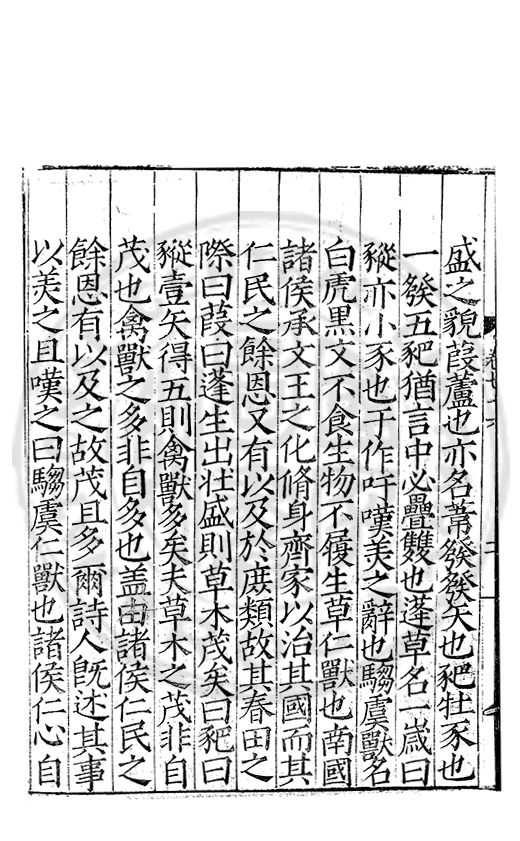 盛之貌葭蘆也亦名葦發發矢也豝牡豕也
一發五豝猶言中必疊雙也蓬草名一歳曰
豵亦小豕也于作吁嘆美之辭也騶虞獸名
白虎黒文不食生物不履生草仁獸也南國
諸侯承文王之化脩身齊家以治其國而其
仁民之餘恩又有以及於庶類故其春田之
際曰葭曰蓬生出壮盛則草木茂矣曰豝曰
豵壹矢得五則禽獸多矣夫草木之茂非自
茂也禽獸之多非自多也盖由諸侯仁民之
餘恩有以及之故茂且多爾詩人既述其事
以美之且嘆之曰騶虞仁獸也諸侯仁心自